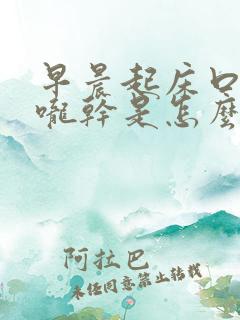 早晨起床口
嚨幹是怎麼
阿拉巴
未经同意禁止转载